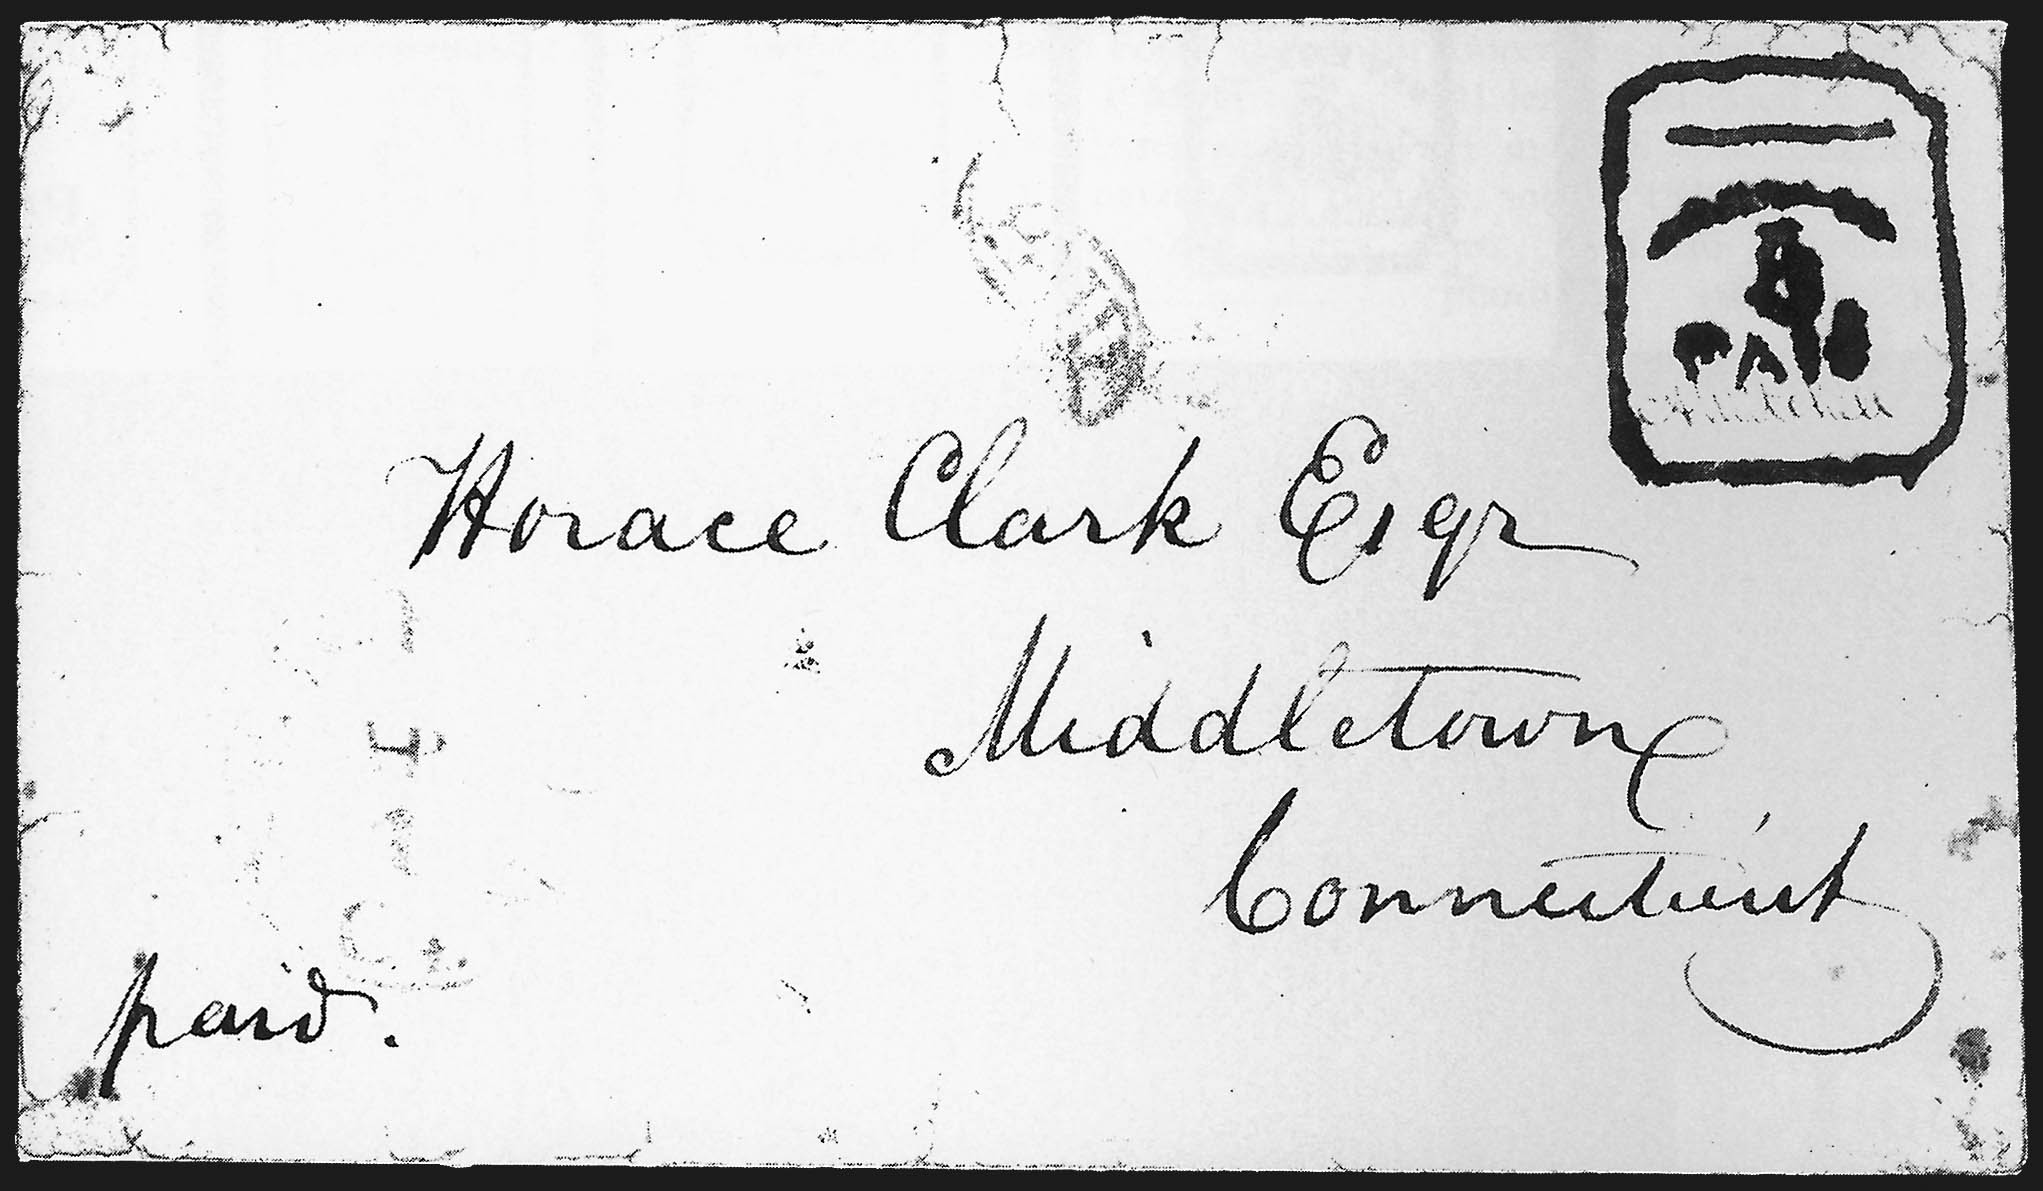 PAID
Horace Clark Esqr
Middletown
Connecticut
paid.